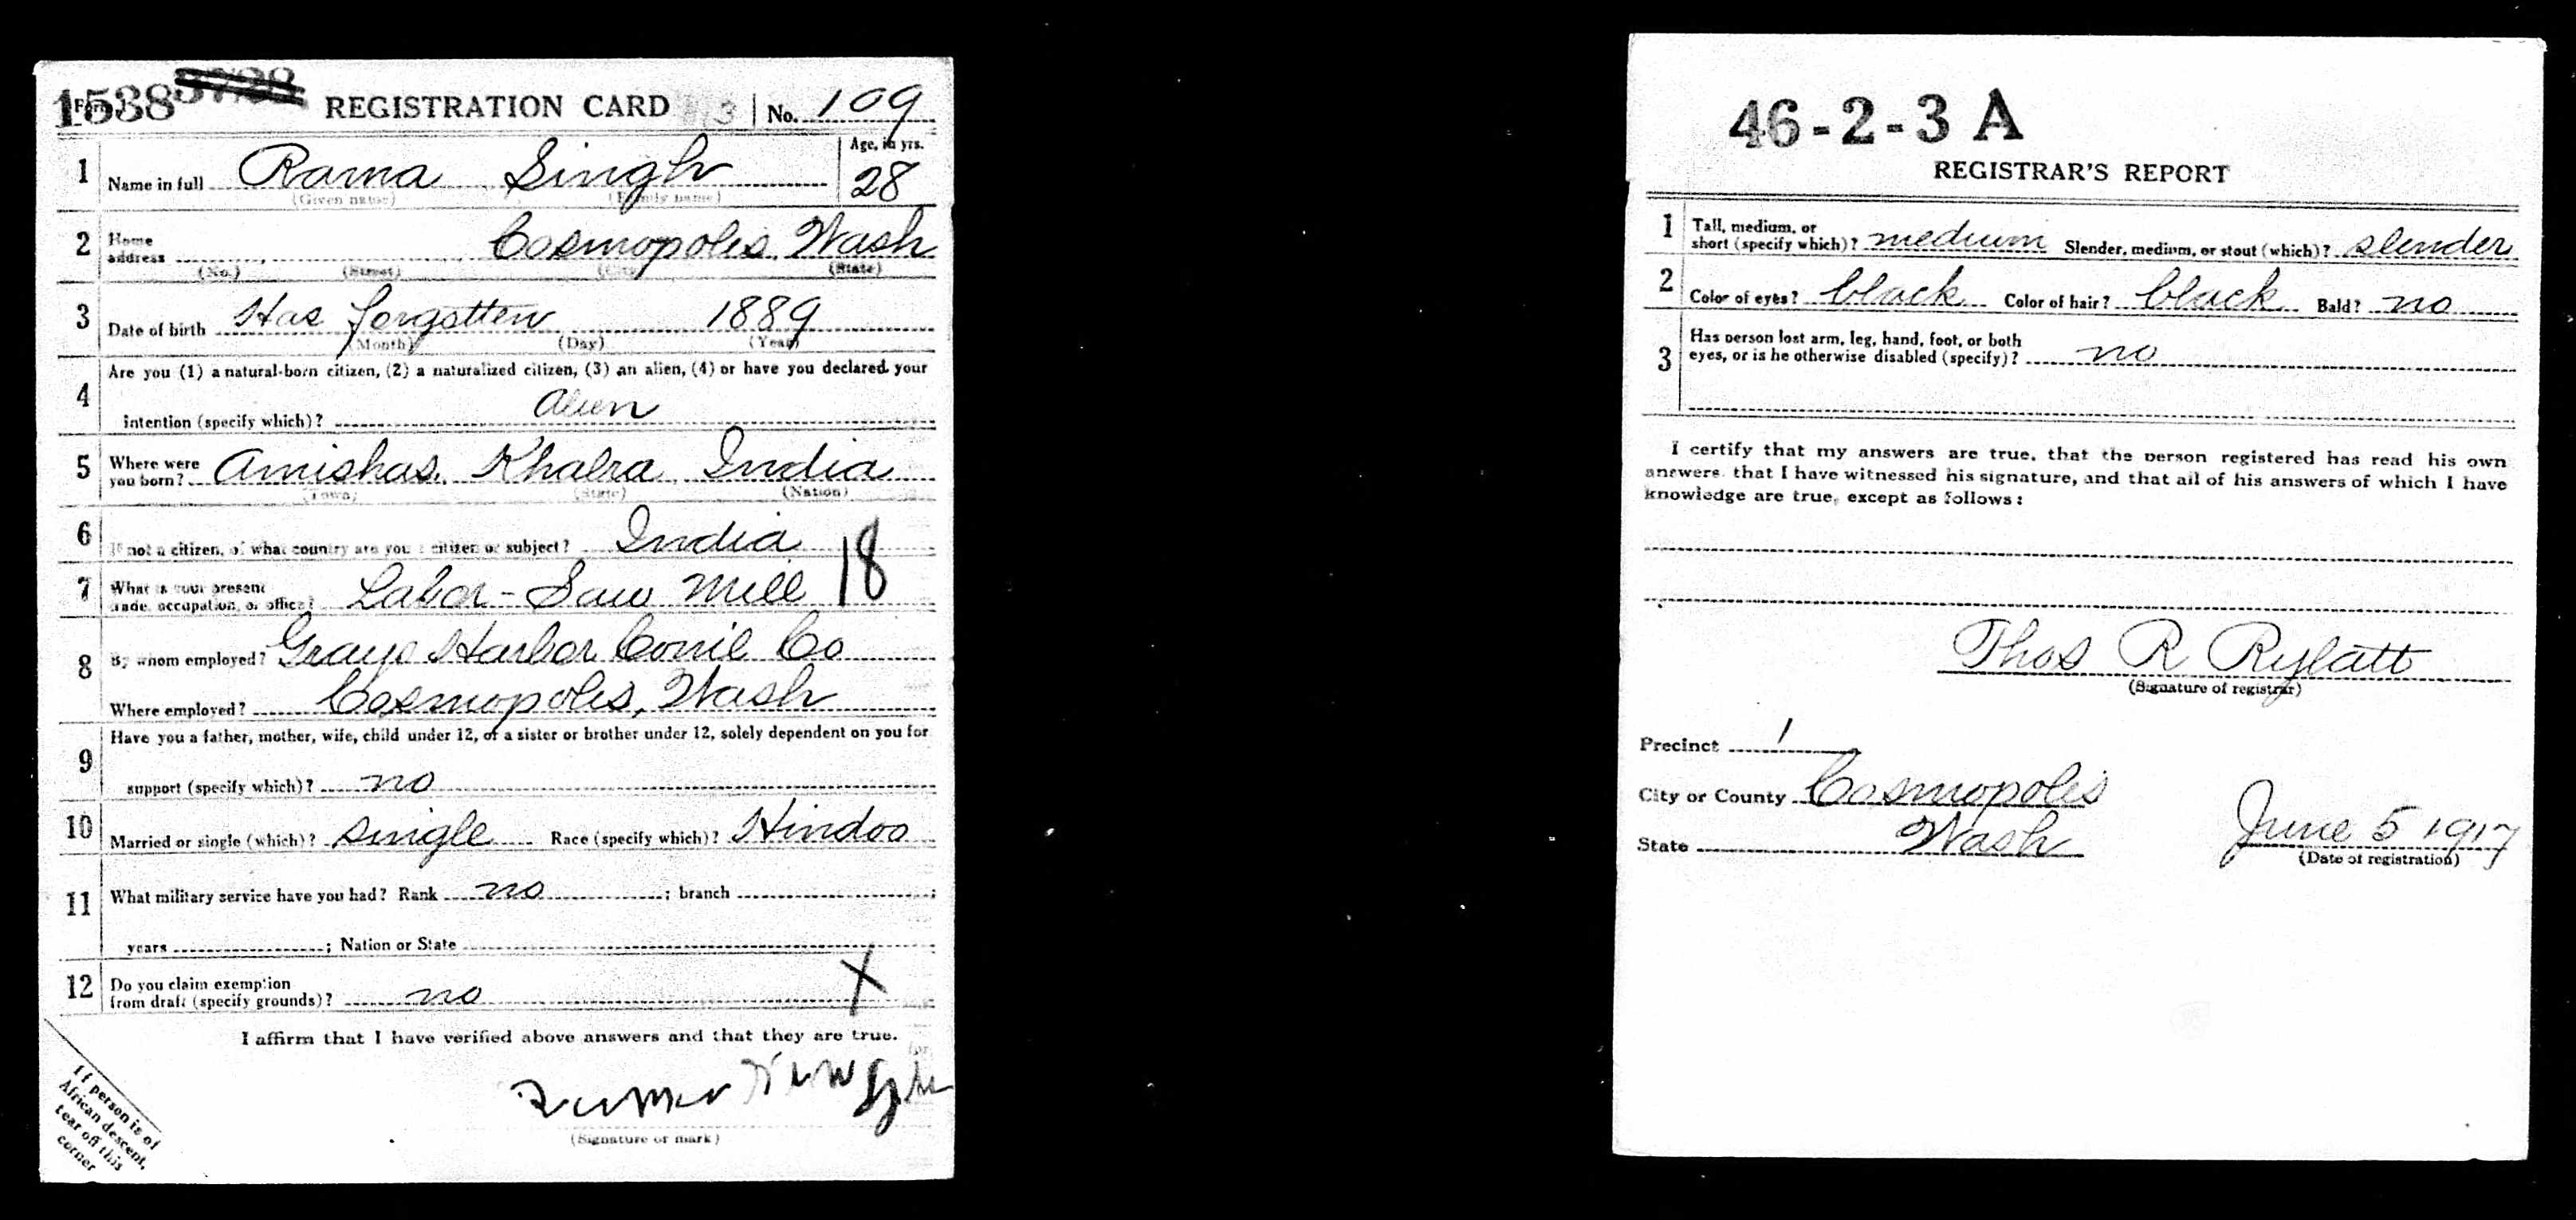 1538 3728
Form 1 REGISTRATION CARD No. 109
1 Name in full Rama Singh Age, in yrs. 28
(Given name) (Family name)
2 Home address Cosmopolis Wash
(No.) (Street) (City) (State)
3 Date of birth Has forgotten 1889
(Month) (Day) (Year)
4 Are you (1) a natural-born citizen, (2) a naturalized citizen, (3) an alien, (4) or have you declared your
intention (specify which)? alien
5 Where were you born? Amishas, Khalra India
(Town) (State) (Nation)
6 If not a citizen, of what country are you a citizen or subject? India
7 What is your present trade, occupation, or office? Labor - Saw Mill 18
8 By whom employed? Grays Harbor Comil Co
Where employed? Cosmopolis, Wash
9 Have you a father, mother, wife, child under 12, or a sister or brother under 12, solely dependent on you for
support (specify which)? no
10 Married or single (which)? single Race (specify which)? Hindoo
11 What military service have you had? Rank no ; branch ;
years ; Nation or State
12 Do you claim exemption from draft (specify grounds)? no X
I affirm that I have verified above answers and that they are true.
(Signature or mark)
If person is of
African descent,
tear off this
corner
46-2-3 A
REGISTRAR'S REPORT
1 Tall, medium, or short (specify which)? medium Slender, medium, or stout (which)? slender
2 Color of eyes? black Color of hair? black Bald? no
3 Has person lost arm, leg, hand, foot, or both
eyes, or is he otherwise disabled (specify)? no
I certify that my answers are true, that the person registered has read his own
answers, that I have witnessed his signature, and that all of his answers of which I have
knowledge are true, except as follows:
Thos R Rylatt
(Signature of registrar)
Precinct 1
City or County Cosmopolis
State Wash June 5 1917
(Date of registration)